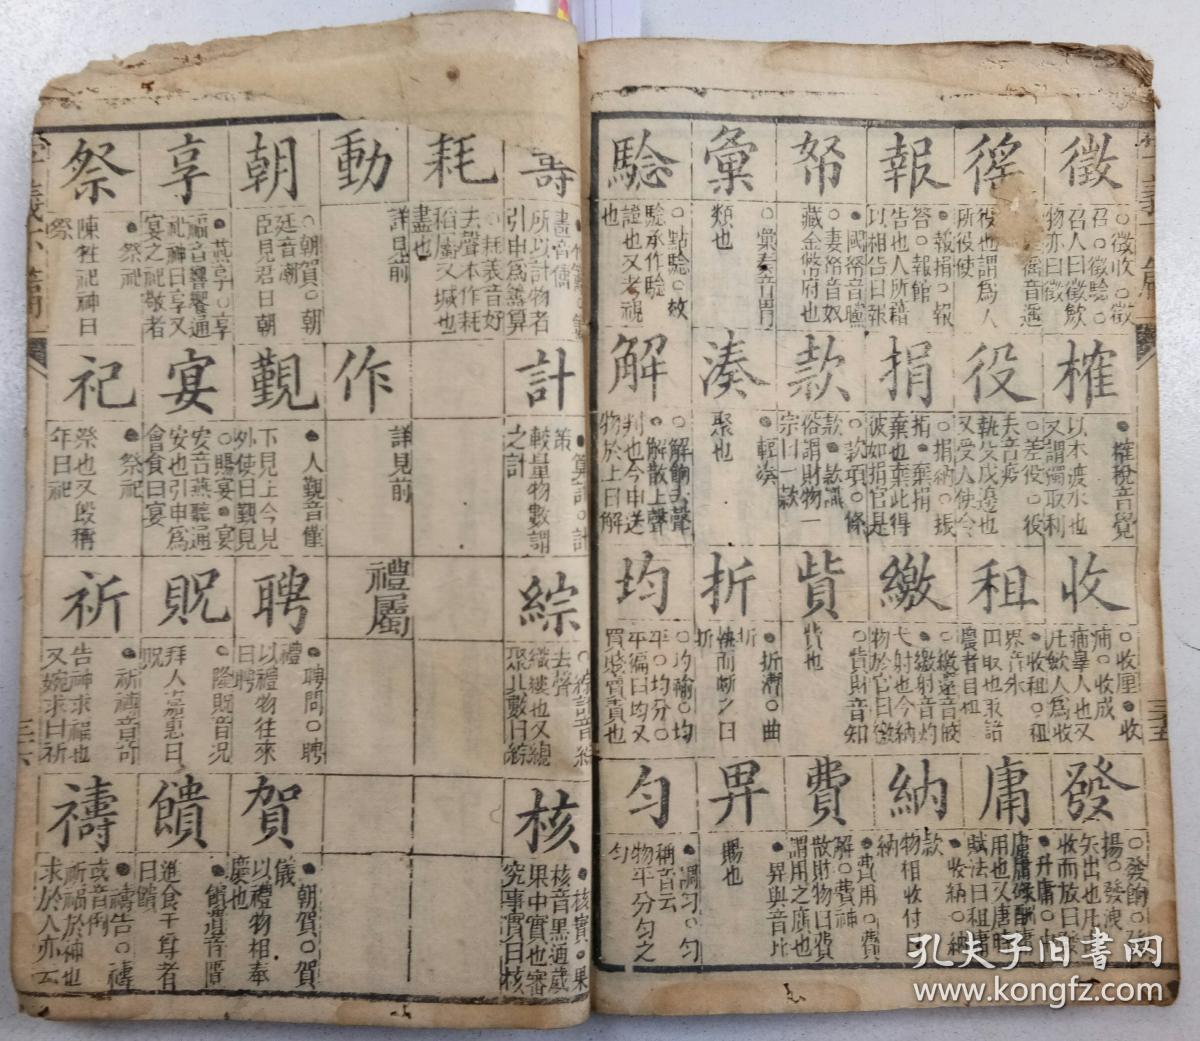 徵
○徵收○徵
召○徵驗○
召人曰徵歛
物亦曰徵
榷
●榷稅音覺
以木渡水也
又謂獨取利
收
○收厘●收
捕○收成
捕辠人也又
凡歛人爲收
發
○發餉○發
揚○發洩
矢出也凡
收而放曰發
徭
徭音遥
役也謂爲人
所役使
役
○差役○役
夫音疫
執殳戍邊也
又受人使令
租
●收租○租
界音外
田取也又語
農者曰租
庸
●升庸○
用也又唐時
賦法曰租庸
報
●報捐○報
答○報館
告也人所藉
以相告曰報
捐
○捐納○賑
捐●棄捐
棄也棄此得
彼如捐官是
繳
○繳還音皎
●繳射音灼
弋射也今納
物於官曰繳
納
●收納○納
款
物相收付曰
納
帑
●國帑音曭
○妻帑音奴
藏金幣府也
款
○款項○條
款○款識
俗謂財物一
宗曰一款
貲
○貲財音知
貲也
費
●費用○費
解○費神
散財物曰費
謂用之廣也
彙
○彙奏音胃
類也
湊
●輻湊
聚也
折
●折漸○曲
折
快而斷之曰
折
畀
●畀與音比
賜也
驗
○點驗○效
驗承作驗
證也又考視
也
解
○解餉去聲
●解散上聲
判也今申送
物於上曰解
均
○均輸○均
平○均分○
平徧曰均又
買賤賣貴也
勻
●調勻○勻
稱音云
物平分勻之
勻
籌
畫音儔
所以計物者
引申爲籌算
計
●算計○計
策
較量物數謂
之計
綜
○綜音綜
去聲
織縷也又總
聚凡數曰綜
核
●核實●果
核音黑通覈
果中實也審
究事實曰核
耗
○耗羨音好
去聲本作秏
稻屬又堿也
盡也
動
詳見前
作
詳見前
禮屬
朝
○朝賀○朝
廷音潮
臣見君曰朝
覲
●人覲音僅
下見上今見
外使曰覲見
聘
●聘問○聘
禮
以禮物往來
曰聘
賀
●朝賀○賀
儀
以禮物相奉
慶也
享
●燕享○享
福音響饗通
祀神曰享又
宴之祀敬者
宴
○賜宴●宴
安音燕聽通
安也引申爲
會食曰宴
貺
●隆貺音况
拜人嘉惠曰
貺
饋
●饋遺音匱
進食于尊者
曰饋
祭
●祭祀
陳牲祀神曰
祭
祀
●祭祀
祭也又殷稱
年曰祀
祈
●祈禱音奇
告神求福也
又婉求曰祈
禱
●禱告○禱
或音倒
祈福於神也
求於人亦云
三五
三六
孔夫子旧书网
www.kongfz.com